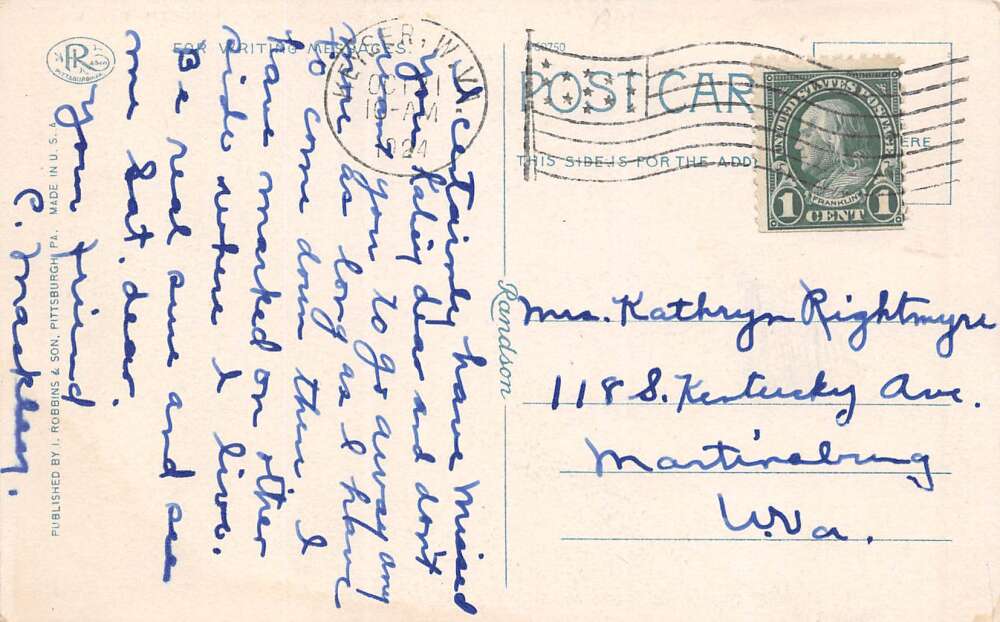 FOR WRITING MESSAGES
POST CARD
THIS SIDE IS FOR THE ADD
ERE
KEYSER, W. VA.
OCT 11
10-AM
1924
UNITED STATES POSTAGE
FRANKLIN
1 CENT 1
I certainly have missed
you Kaliy dear and don't
want you to go away any
more as long as I have
to come down there I
have marked on other
side where I live.
Be a real sure and see
me Sat. dear.
Your friend
C. Mackley.
Mrs. Kathryn Rightmyre
118 S. Kentucky Ave.
Martinsburg
W.Va.
Randson
PUBLISHED BY I. ROBBINS & SON, PITTSBURGH, PA. MADE IN U.S.A.